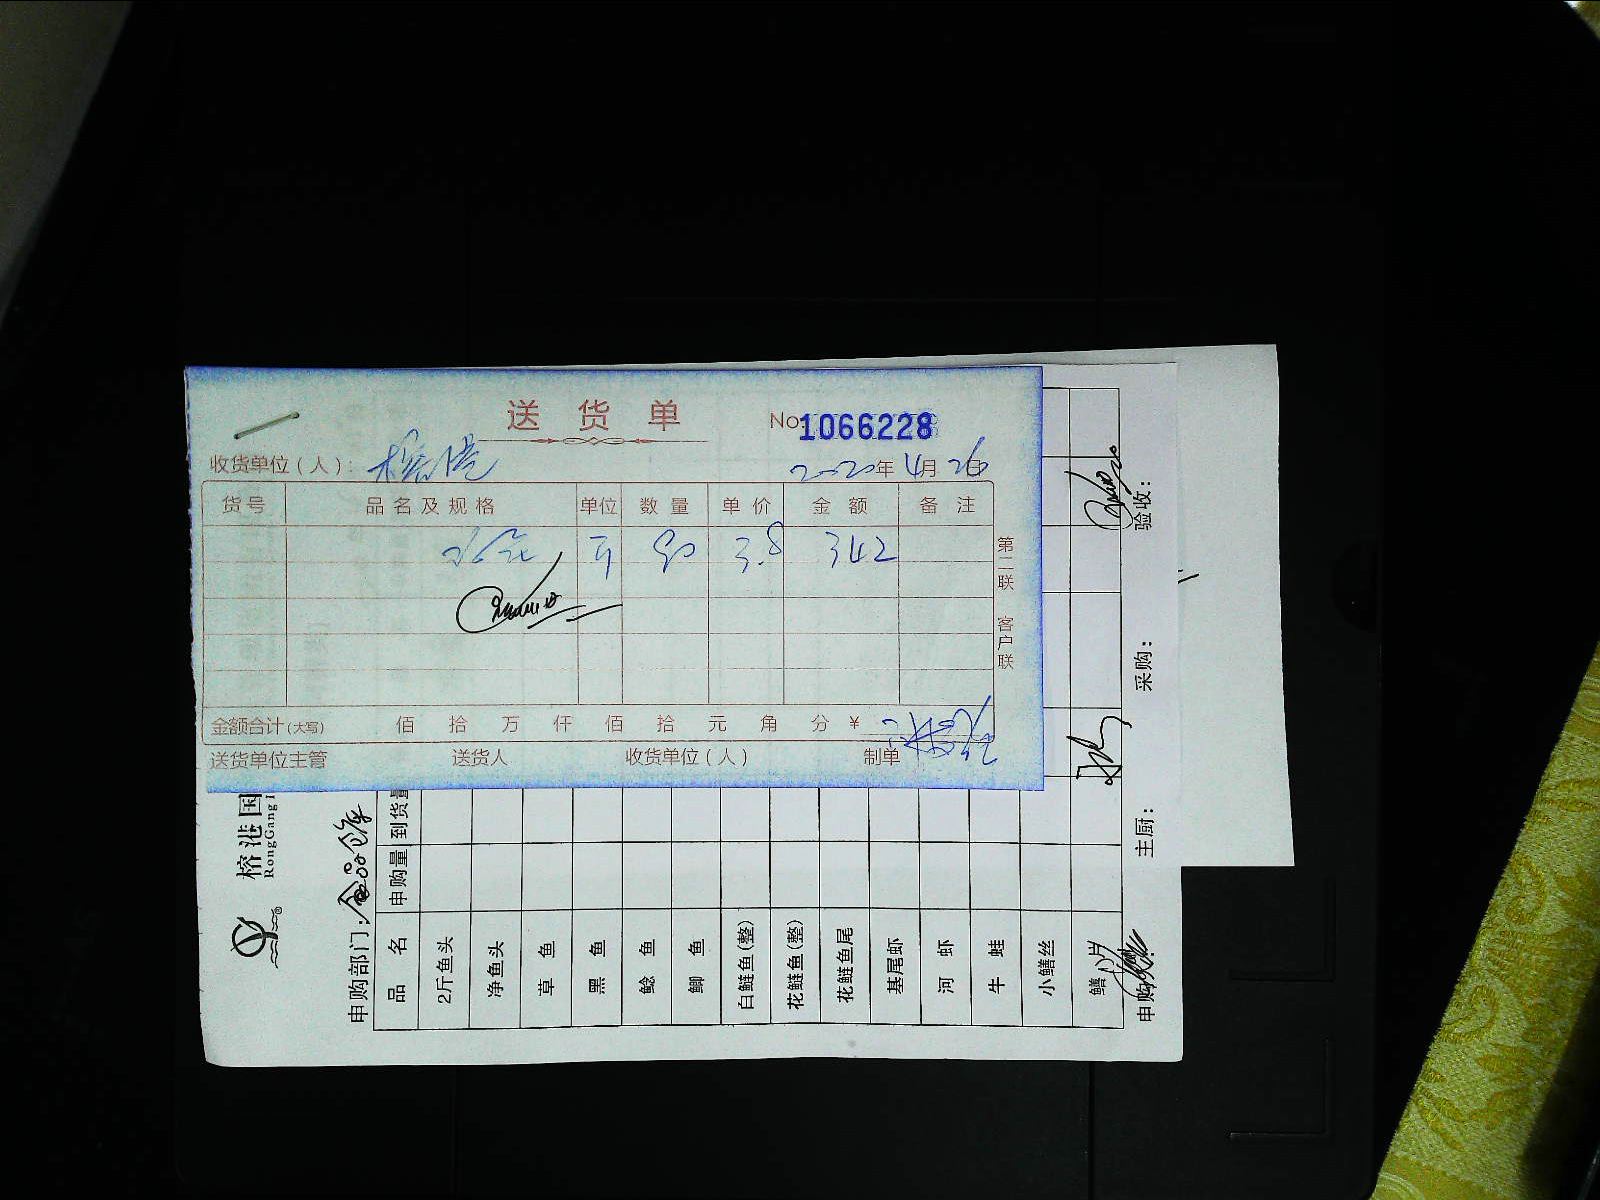 送货单
No. 1066228
收货单位(人): 榕港
2020年4月26日
货号 品名及规格 单位 数量 单价 金额 备注
斤 90 3.8 342
第二联 客户联
金额合计(大写) 佰 拾 万 仟 佰 拾 元 角 分 ¥
送货单位主管 送货人 收货单位(人) 制单
榕港国
RongGang I
申购部门:
品名 申购量 到货量
2斤鱼头
净鱼头
草鱼
黑鱼
鲶鱼
鲫鱼
白鲢鱼(整)
花鲢鱼(整)
花鲢鱼尾
基尾虾
河虾
牛蛙
小鳝丝
鳝片
申购: 主厨: 采购: 验收: